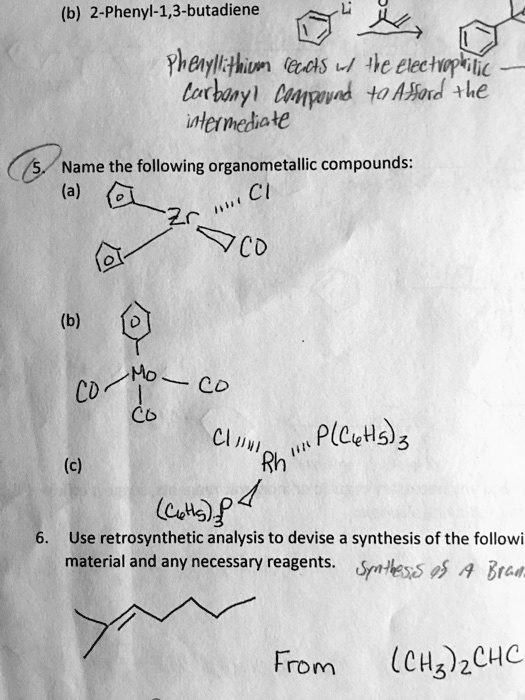 (b) 2-Phenyl-1,3-butadiene
Li
O
Phenyllithium reacts w/ the electrophilic
Carbonyl Compound to Afford the
intermediate
5. Name the following organometallic compounds:
(a)
Cl
Zr
CO
(b)
CO Mo CO
CO
(c)
Cl Rh P(C6H5)3
(C6H5)3P
6. Use retrosynthetic analysis to devise a synthesis of the followi
material and any necessary reagents. Synthesis of A Bran
From (CH3)2CHC